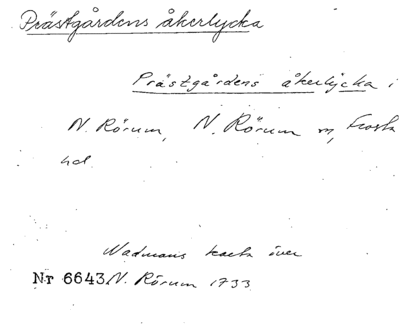 Prästgårdens åkerlycka
Prästgårdens åkerlycka i
N. Rörum, N. Rörum sn, Frosta
hd.
Wadmans karta över
Nr 6643 N. Rörum 1733